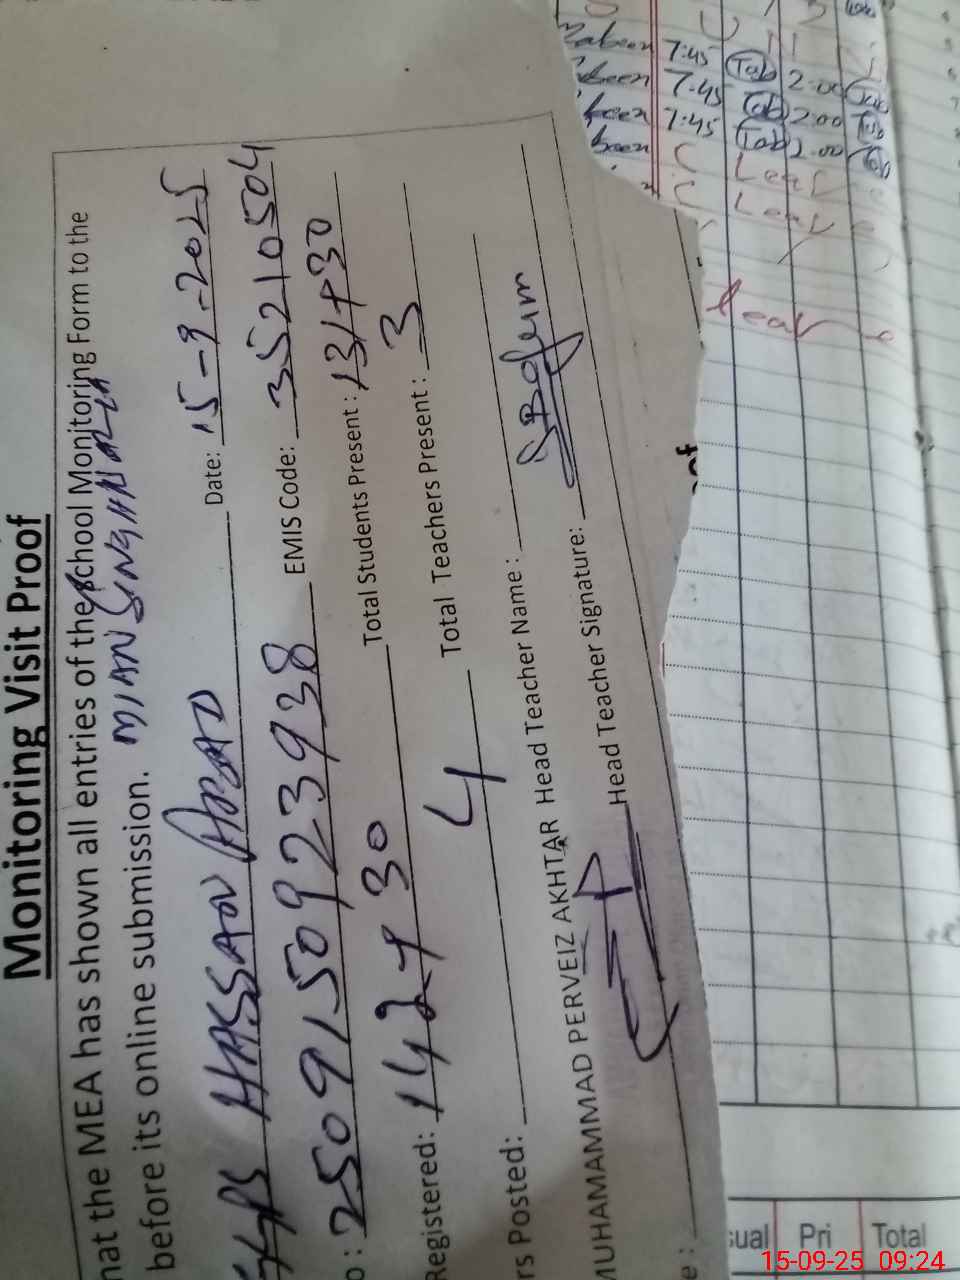 Monitoring Visit Proof
hat the MEA has shown all entries of the School Monitoring Form to the
before its online submission. MIAN SINGH
HASSAN ABAD Date: 15-9-2025
o : 250915092393 8 EMIS Code: 35210504
Registered: 142+30 Total Students Present : 131+30
rs Posted: 4 Total Teachers Present : 3
MUHAMAMMAD PERVEIZ AKHTAR Head Teacher Name :
e : Head Teacher Signature:
7:45 Tab 2:00 Tab
7:45 Tab 2:00 Tab
7:45 Tab 2:00 Tab
Leav
Leav
leav
sual Pri Total
15-09-25 09:24